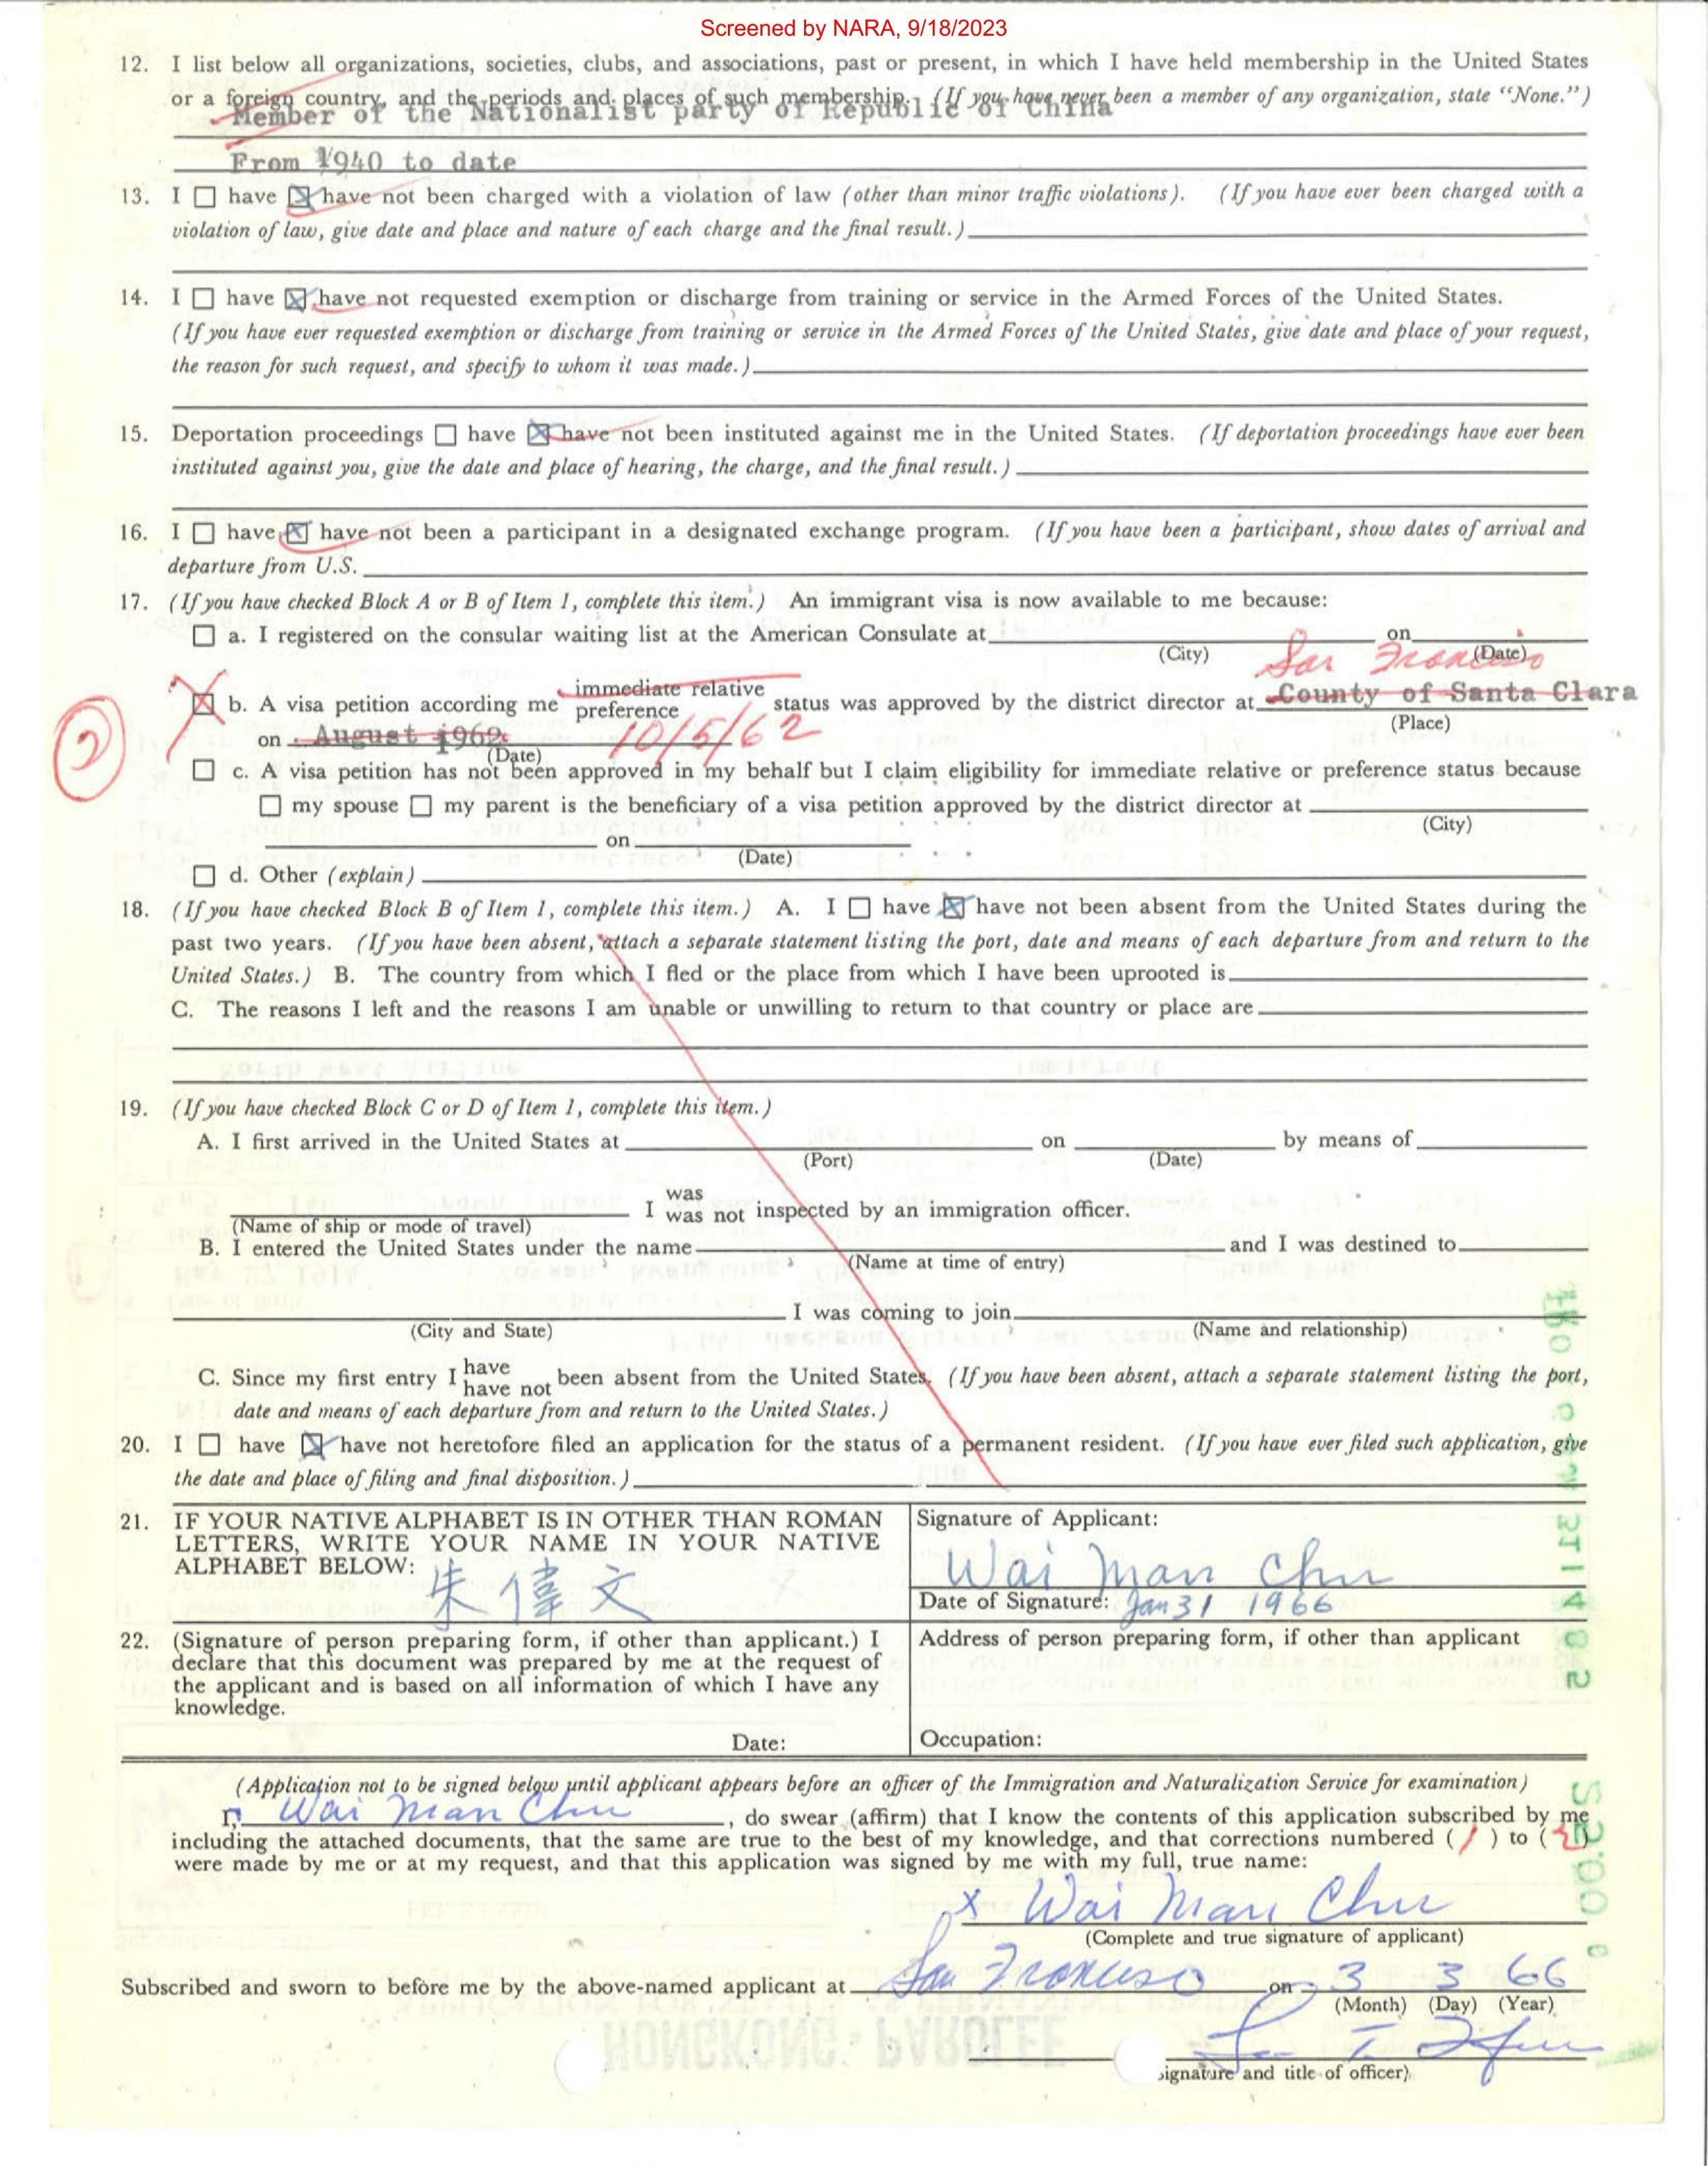 Screened by NARA, 9/18/2023
12. I list below all organizations, societies, clubs, and associations, past or present, in which I have held membership in the United States
or a foreign country, and the periods and places of such membership. (If you have never been a member of any organization, state "None.")
Member of the Nationalist party of Republic of China
From 1940 to date
13. I ☐ have ☒ have not been charged with a violation of law (other than minor traffic violations). (If you have ever been charged with a
violation of law, give date and place and nature of each charge and the final result.)
14. I ☐ have ☒ have not requested exemption or discharge from training or service in the Armed Forces of the United States.
(If you have ever requested exemption or discharge from training or service in the Armed Forces of the United States, give date and place of your request,
the reason for such request, and specify to whom it was made.)
15. Deportation proceedings ☐ have ☒ have not been instituted against me in the United States. (If deportation proceedings have ever been
instituted against you, give the date and place of hearing, the charge, and the final result.)
16. I ☐ have ☒ have not been a participant in a designated exchange program. (If you have been a participant, show dates of arrival and
departure from U.S.
17. (If you have checked Block A or B of Item 1, complete this item.) An immigrant visa is now available to me because:
☐ a. I registered on the consular waiting list at the American Consulate at on
(City) (Date)
San Francisco
☒ b. A visa petition according me immediate relative preference status was approved by the district director at County of Santa Clara
(Place)
2
on August 1962 10/5/62
(Date)
☐ c. A visa petition has not been approved in my behalf but I claim eligibility for immediate relative or preference status because
☐ my spouse ☐ my parent is the beneficiary of a visa petition approved by the district director at
(City)
on
(Date)
☐ d. Other (explain)
18. (If you have checked Block B of Item 1, complete this item.) A. I ☐ have ☒ have not been absent from the United States during the
past two years. (If you have been absent, attach a separate statement listing the port, date and means of each departure from and return to the
United States.) B. The country from which I fled or the place from which I have been uprooted is
C. The reasons I left and the reasons I am unable or unwilling to return to that country or place are
19. (If you have checked Block C or D of Item 1, complete this item.)
A. I first arrived in the United States at on by means of
(Port) (Date)
I was was not inspected by an immigration officer.
(Name of ship or mode of travel)
B. I entered the United States under the name and I was destined to
(Name at time of entry)
I was coming to join
(City and State) (Name and relationship)
C. Since my first entry I have have not been absent from the United States. (If you have been absent, attach a separate statement listing the port,
date and means of each departure from and return to the United States.)
20. I ☐ have ☒ have not heretofore filed an application for the status of a permanent resident. (If you have ever filed such application, give
the date and place of filing and final disposition.)
21. IF YOUR NATIVE ALPHABET IS IN OTHER THAN ROMAN
LETTERS, WRITE YOUR NAME IN YOUR NATIVE
ALPHABET BELOW:
朱偉文
Signature of Applicant:
Wai Man Chu
Date of Signature: Jan 31 1966
22. (Signature of person preparing form, if other than applicant.) I
declare that this document was prepared by me at the request of
the applicant and is based on all information of which I have any
knowledge.
Date:
Address of person preparing form, if other than applicant
Occupation:
(Application not to be signed below until applicant appears before an officer of the Immigration and Naturalization Service for examination)
I, Wai Man Chu, do swear (affirm) that I know the contents of this application subscribed by me
including the attached documents, that the same are true to the best of my knowledge, and that corrections numbered ( 1 ) to ( )
were made by me or at my request, and that this application was signed by me with my full, true name:
x Wai Man Chu
(Complete and true signature of applicant)
Subscribed and sworn to before me by the above-named applicant at San Francisco on 3 3 66
(Month) (Day) (Year)
HONGKONG PAROLEE
ignature and title of officer)